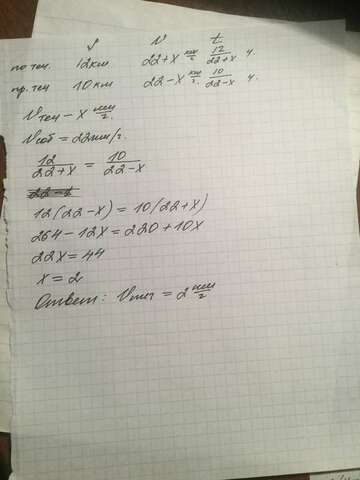 S V t
по теч. 12км 22+x км/ч 12/22+x ч.
пр. теч 10км 22-x км/ч 10/22-x ч.
Vтеч - x км/ч.
Vсоб = 22км/ч.
12/22+x = 10/22-x
12(22-x) = 10(22+x)
264-12x=220+10x
22x=44
x=2
Ответ: Vтеч = 2 км/ч